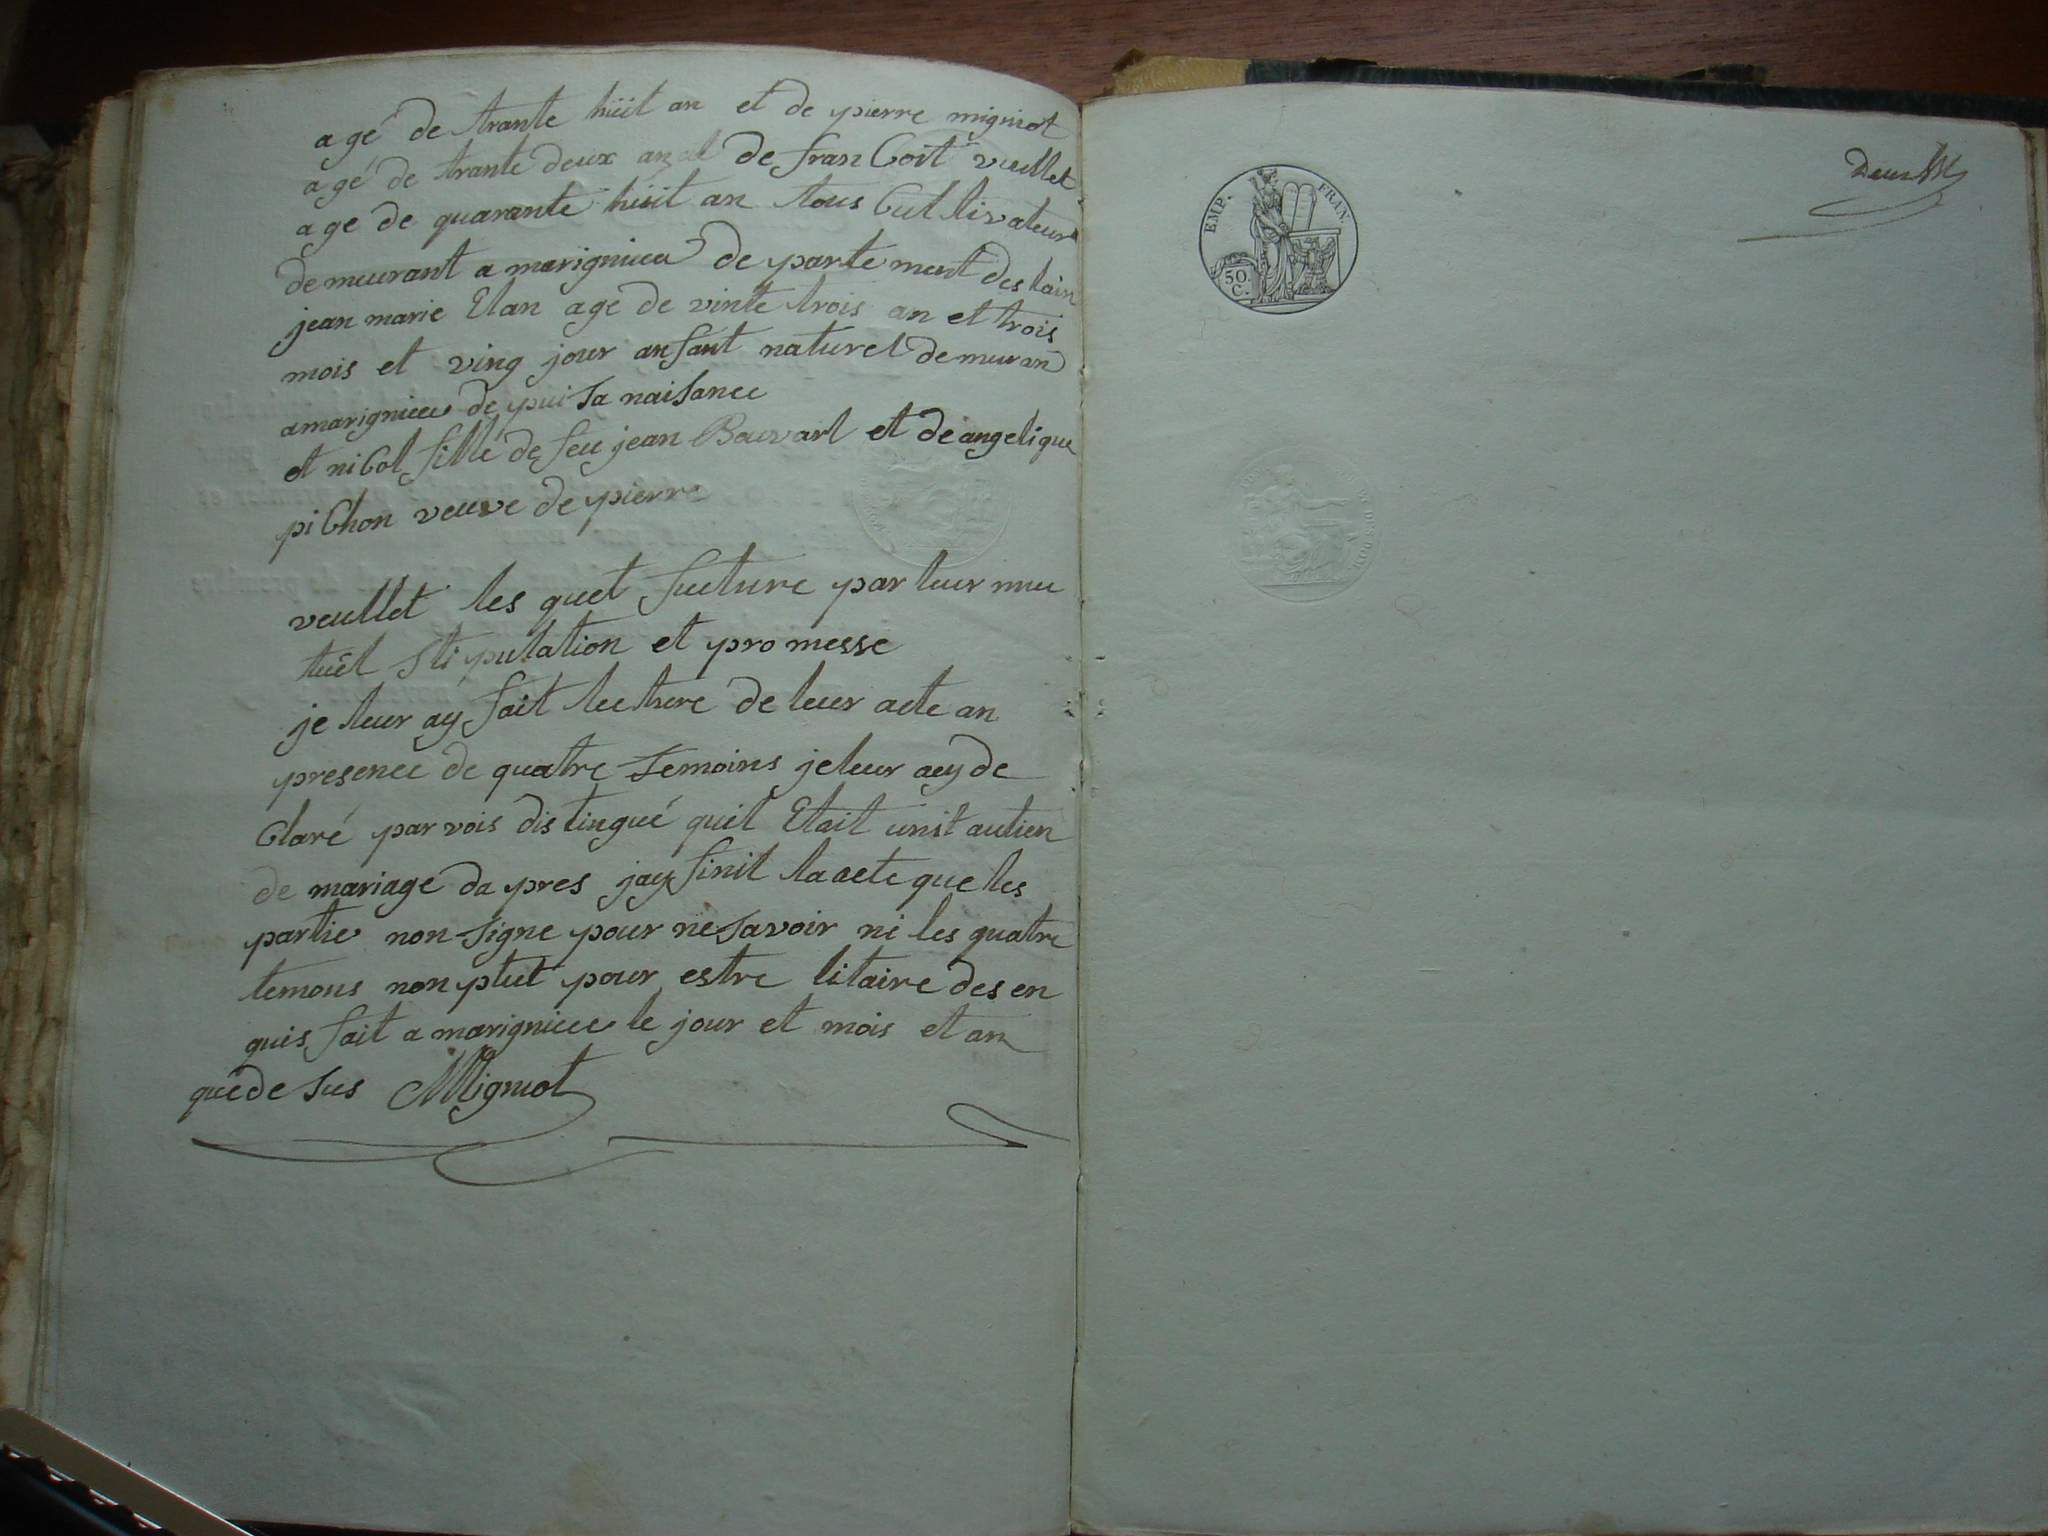 agé de trante hüit an et de pierre migniot
agé de trante deux an et de fran Coit vuellet
age de quarante hüit an tous Cultivateur
demeurant a marignieu departement des lain
jean marie Elan age de vinte trois an et trois
mois et ving jour anfant naturel demuran
a marignieu depui sa naisance
et niCol fille de feu jean Bouvart et de angelique
piChon veuve de pierre
veullet les quet fueture par leur mu
tuël stipulation et promesse
je leur ay fait lecture de leur acte an
presence de quatre temoins je leur ay de
Claré par vois distingué quil Etait unit au lien
de mariage da pres jay finit la acte que les
partie non signe pour ne savoir ni les quatre
temons non plut pour estre litaire des en
quis fait a marignieu le jour et mois et an
que de sus Migniot
EMP. FRAN.
50 C.